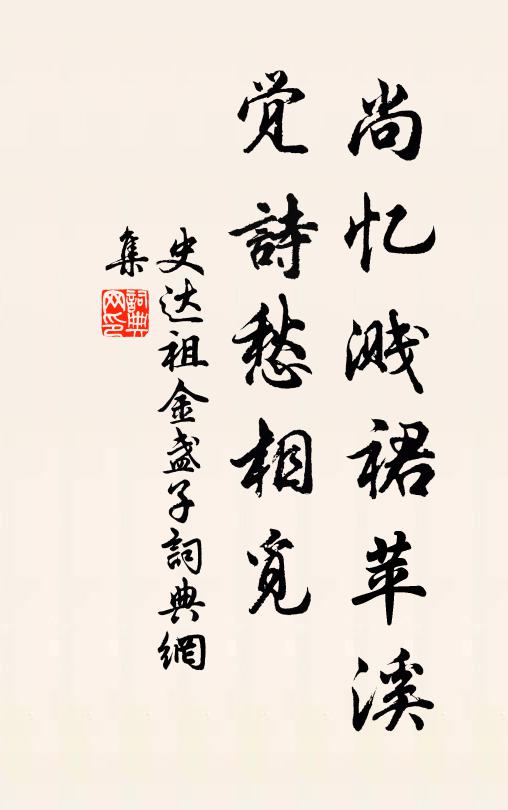 尚忆溅裙苹溪
觉詩愁相覓
史达祖金盏子詞典網
集
詞典网印